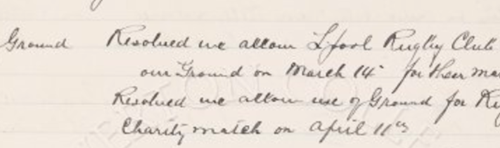 Ground Resolved we allow L'pool Rugby Club
our Ground on March 14 for their
Resolved we allow use of Ground for
Charity match on April 11th